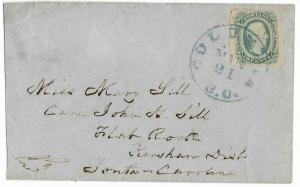 COLUMBIA
21
S.C.
Miss Mary Gill
Care John S. Gill
Flat Rock
Kershaw Dist
South-Carolina